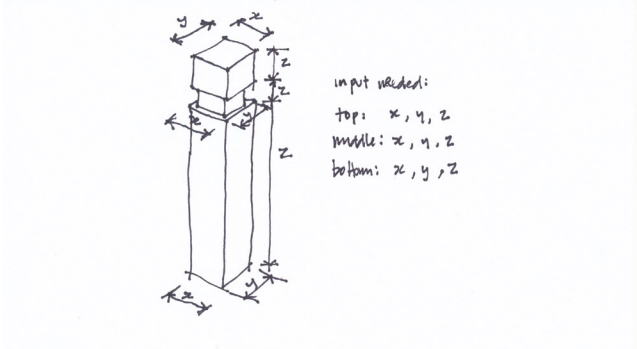 y x
z
z
x y
z
x y
input needed:
top: x, y, z
middle: x, y, z
bottom: x, y, z